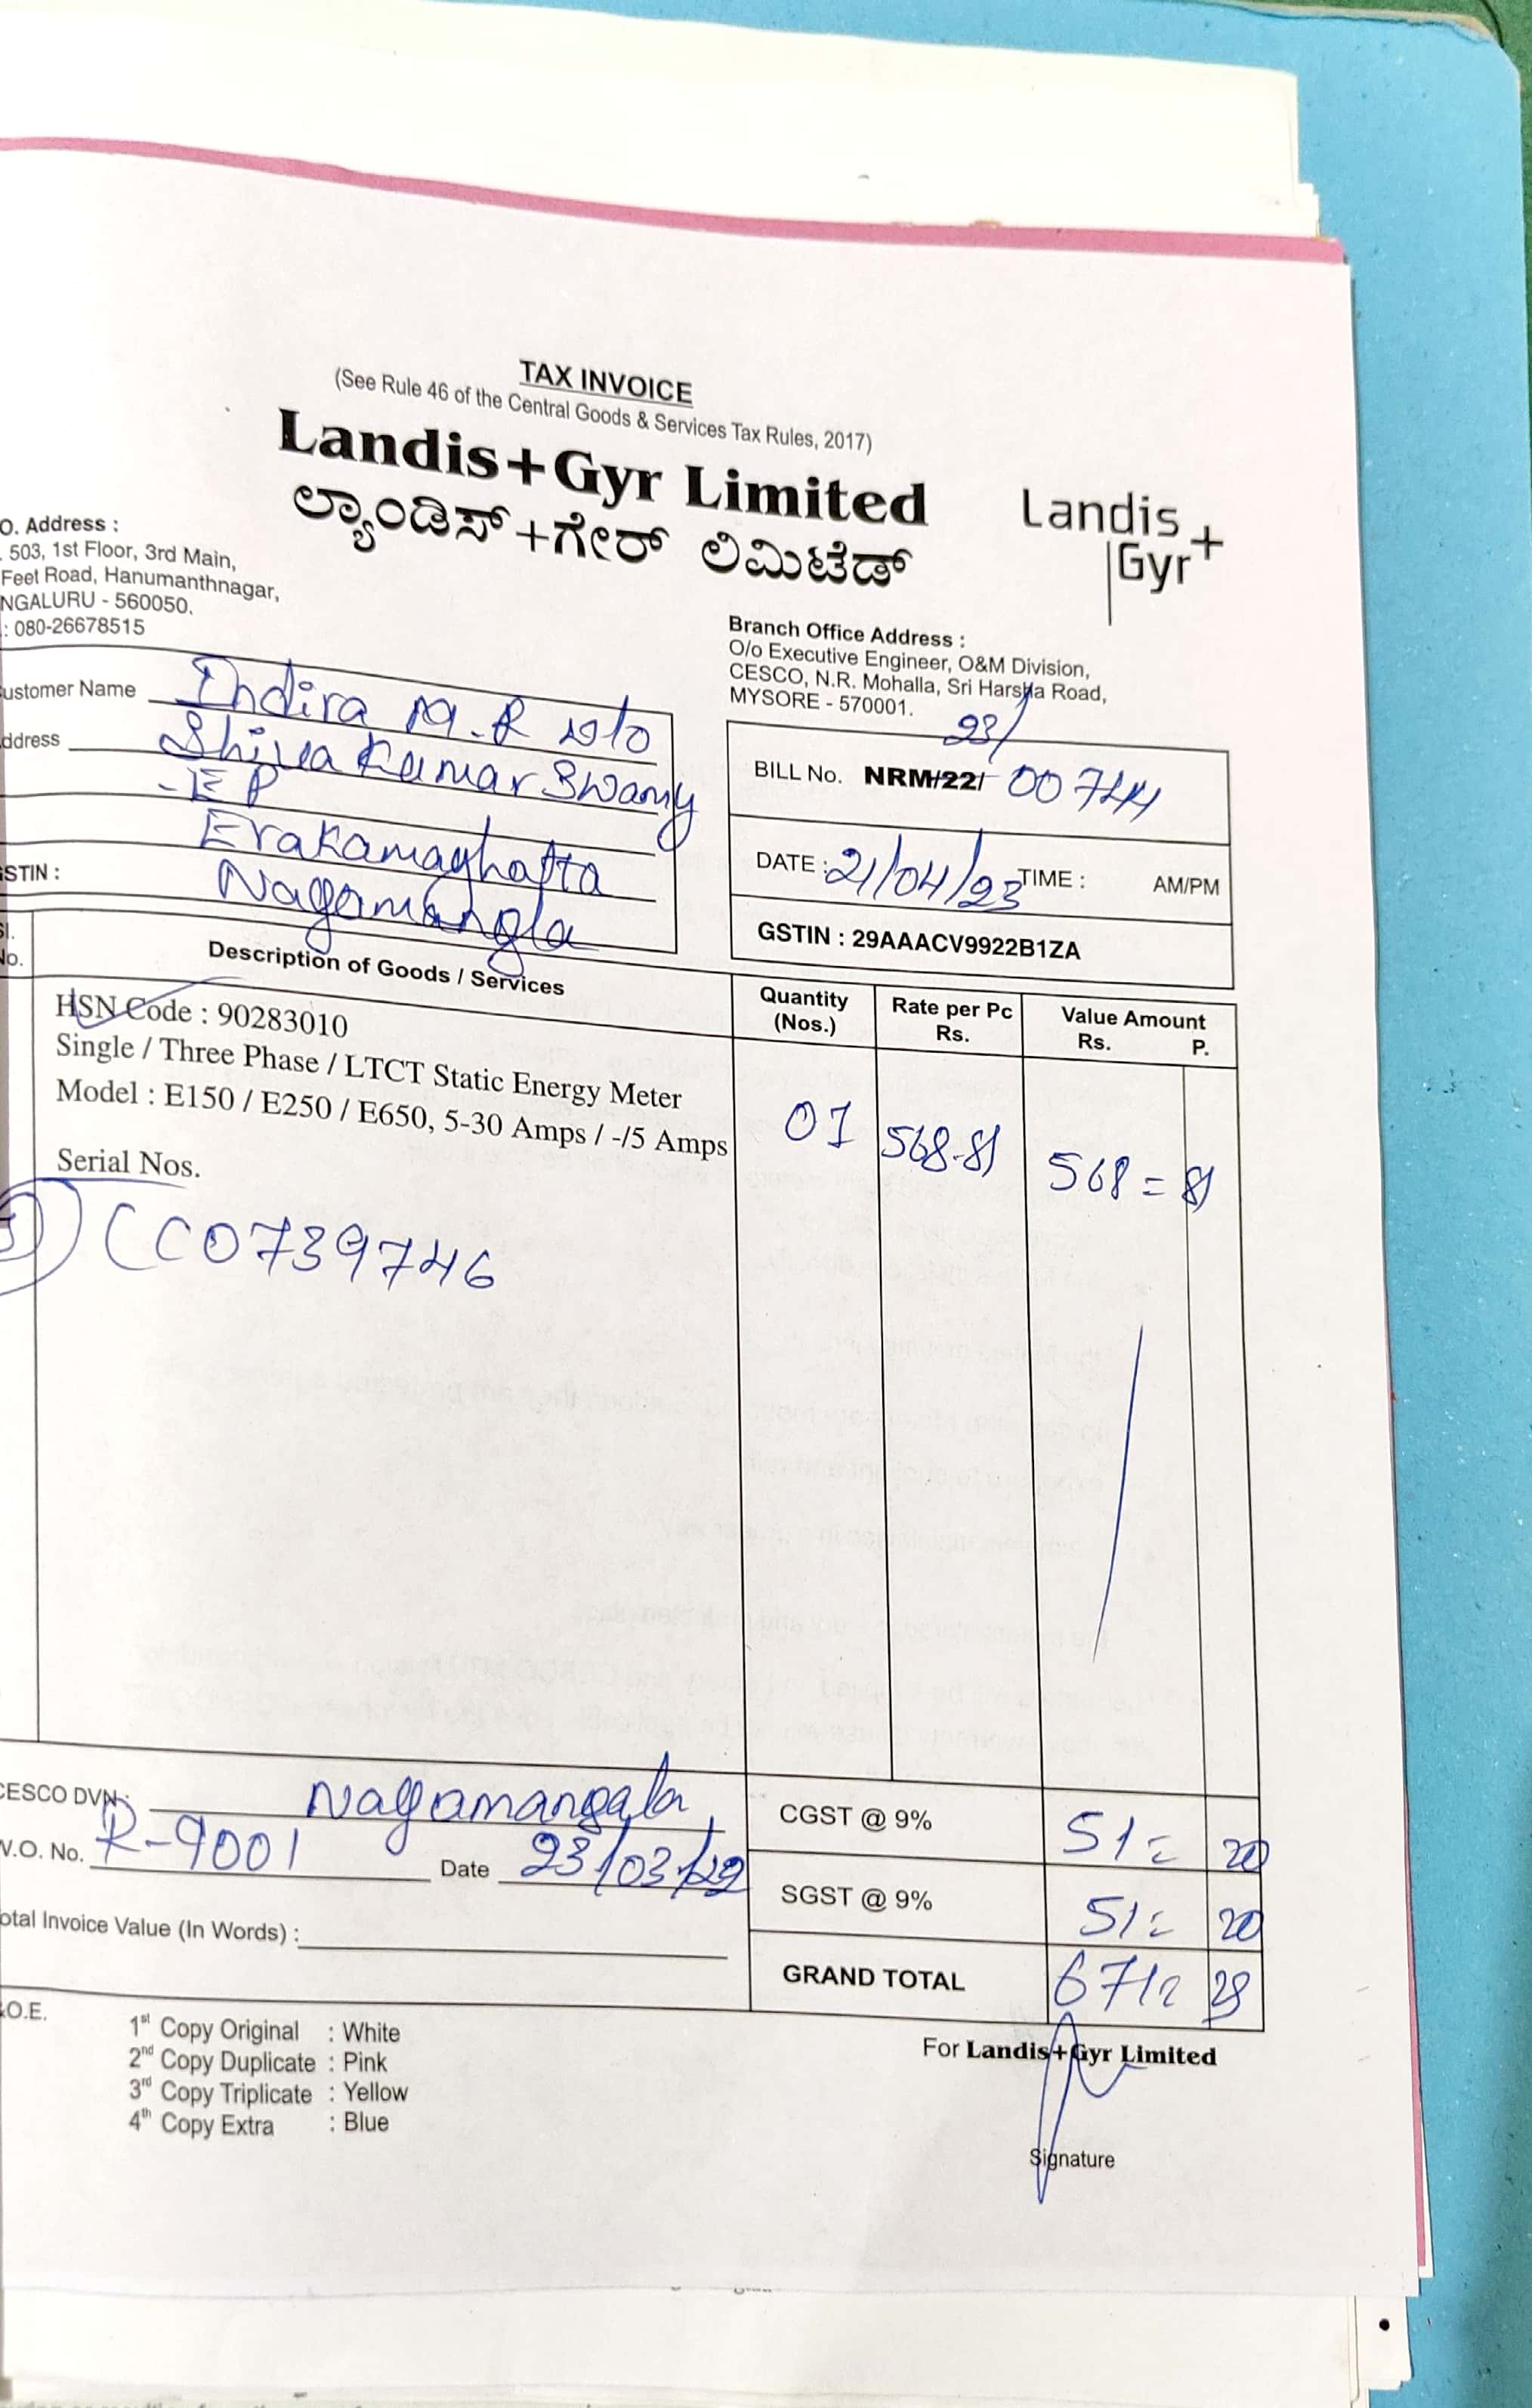 TAX INVOICE
(See Rule 46 of the Central Goods & Services Tax Rules, 2017)
Landis+Gyr Limited
ಲ್ಯಾಂಡಿಸ್+ಗೇರ್ ಲಿಮಿಟೆಡ್
Landis
Gyr+
O. Address :
503, 1st Floor, 3rd Main,
Feet Road, Hanumanthnagar,
NGALURU - 560050.
: 080-26678515
Branch Office Address :
O/o Executive Engineer, O&M Division,
CESCO, N.R. Mohalla, Sri Harsha Road,
MYSORE - 570001.
ustomer Name Indira M.R w/o
ddress Shiva Kumar Swamy
-E P
Erakamaghatta
STIN : Nagamangla
23/
BILL No. NRM/22/ 00744
DATE : 21/04/23 TIME : AM/PM
GSTIN : 29AAACV9922B1ZA
Sl. No. Description of Goods / Services Quantity (Nos.) Rate per Pc Rs. Value Amount Rs. P.
HSN Code : 90283010
Single / Three Phase / LTCT Static Energy Meter
Model : E150 / E250 / E650, 5-30 Amps / -/5 Amps 01 568-81 568=81
Serial Nos.
CC0739746
CESCO DVN: Nagamangala
W.O. No. R-9001 Date 23/03/22
otal Invoice Value (In Words) :
CGST @ 9% 51= 20
SGST @ 9% 51= 20
GRAND TOTAL 671=
.O.E.
1st Copy Original : White
2nd Copy Duplicate : Pink
3rd Copy Triplicate : Yellow
4th Copy Extra : Blue
For Landis+Gyr Limited
Signature